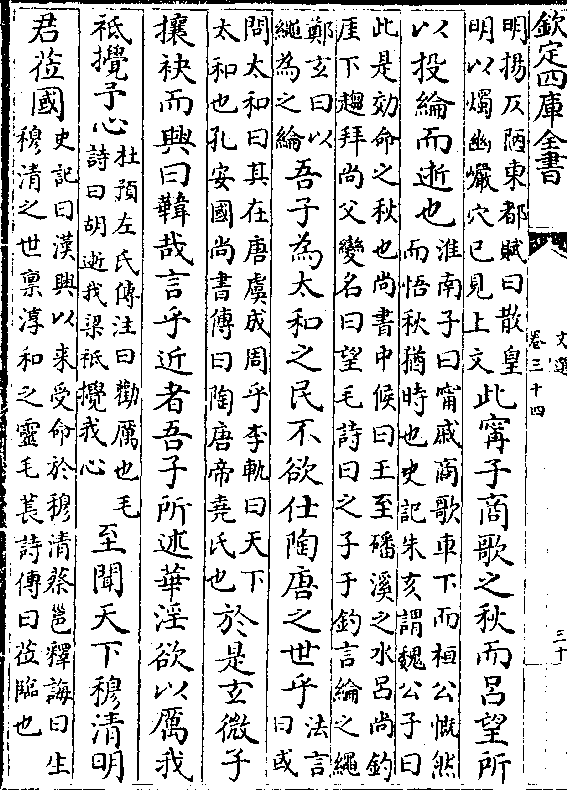 欽定四庫全書
文選
卷三十四
三十
明揚仄陋東都賦曰散皇
明以燭幽巖穴已見上文
此寗子商歌之秋而呂望所
以投綸而逝也
淮南子曰甯戚商歌車下而桓公慨然
而悟秋猶時也史記朱亥謂魏公子曰
此是効命之秋也尚書中候曰王至磻溪之水呂尚釣
厓下趨拜尚父變名曰望毛詩曰之子于釣言綸之繩
鄭玄曰以
繩為之綸
吾子為太和之民不欲仕陶唐之世乎
法言
曰或
問太和曰其在唐虞成周乎李軌曰天下
太和也孔安國尚書傳曰陶唐帝堯氏也
於是玄微子
攘袂而興曰韡哉言乎近者吾子所述華淫欲以厲我
祇攪予心
杜預左氏傳注曰勸厲也毛
詩曰胡逝我梁祇攪我心
至聞天下穆清明
君莅國
史記曰漢興以来受命於穆清蔡邕釋誨曰生
穆清之世稟淳和之靈毛萇詩傳曰莅臨也